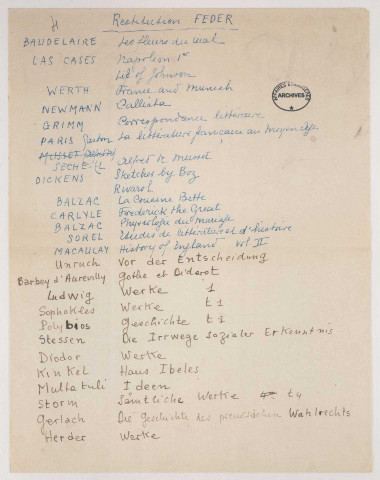 H Restitution FEDER
BAUDELAIRE Les fleurs du mal
LAS CASES Napoleon 1er
Life of Johnson
WERTH France and Munich
NEWMANN Callista
ARCHIVES
GRIMM Correspondance littéraire
PARIS Gaston La littérature française au moyen age
MUSSET
SECHÉ Alfred de Musset
DICKENS Sketches by Boz
Rivarol
BALZAC La Cousine Bette
CARLYLE Frederick the Great
BALZAC Physiologie du mariage
SOREL Etudes de littérature et d'histoire
MACAULAY History of England vol II
Unruch Vor der Entscheidung
Barbey d'Aurevilly Gothe et Diderot
Ludwig Werke 1
Sophokles Werke t 1
Polybios Geschichte t 1
Stessen Die Irrwege sozialer Erkenntnis
Diodor Werke
Kinkel Hans Ibeles
Multatuli Ideen
Storm Sämtliche Werke t 4
Gerlach Die Geschichte des preussischen Wahlrechts
Herder Werke